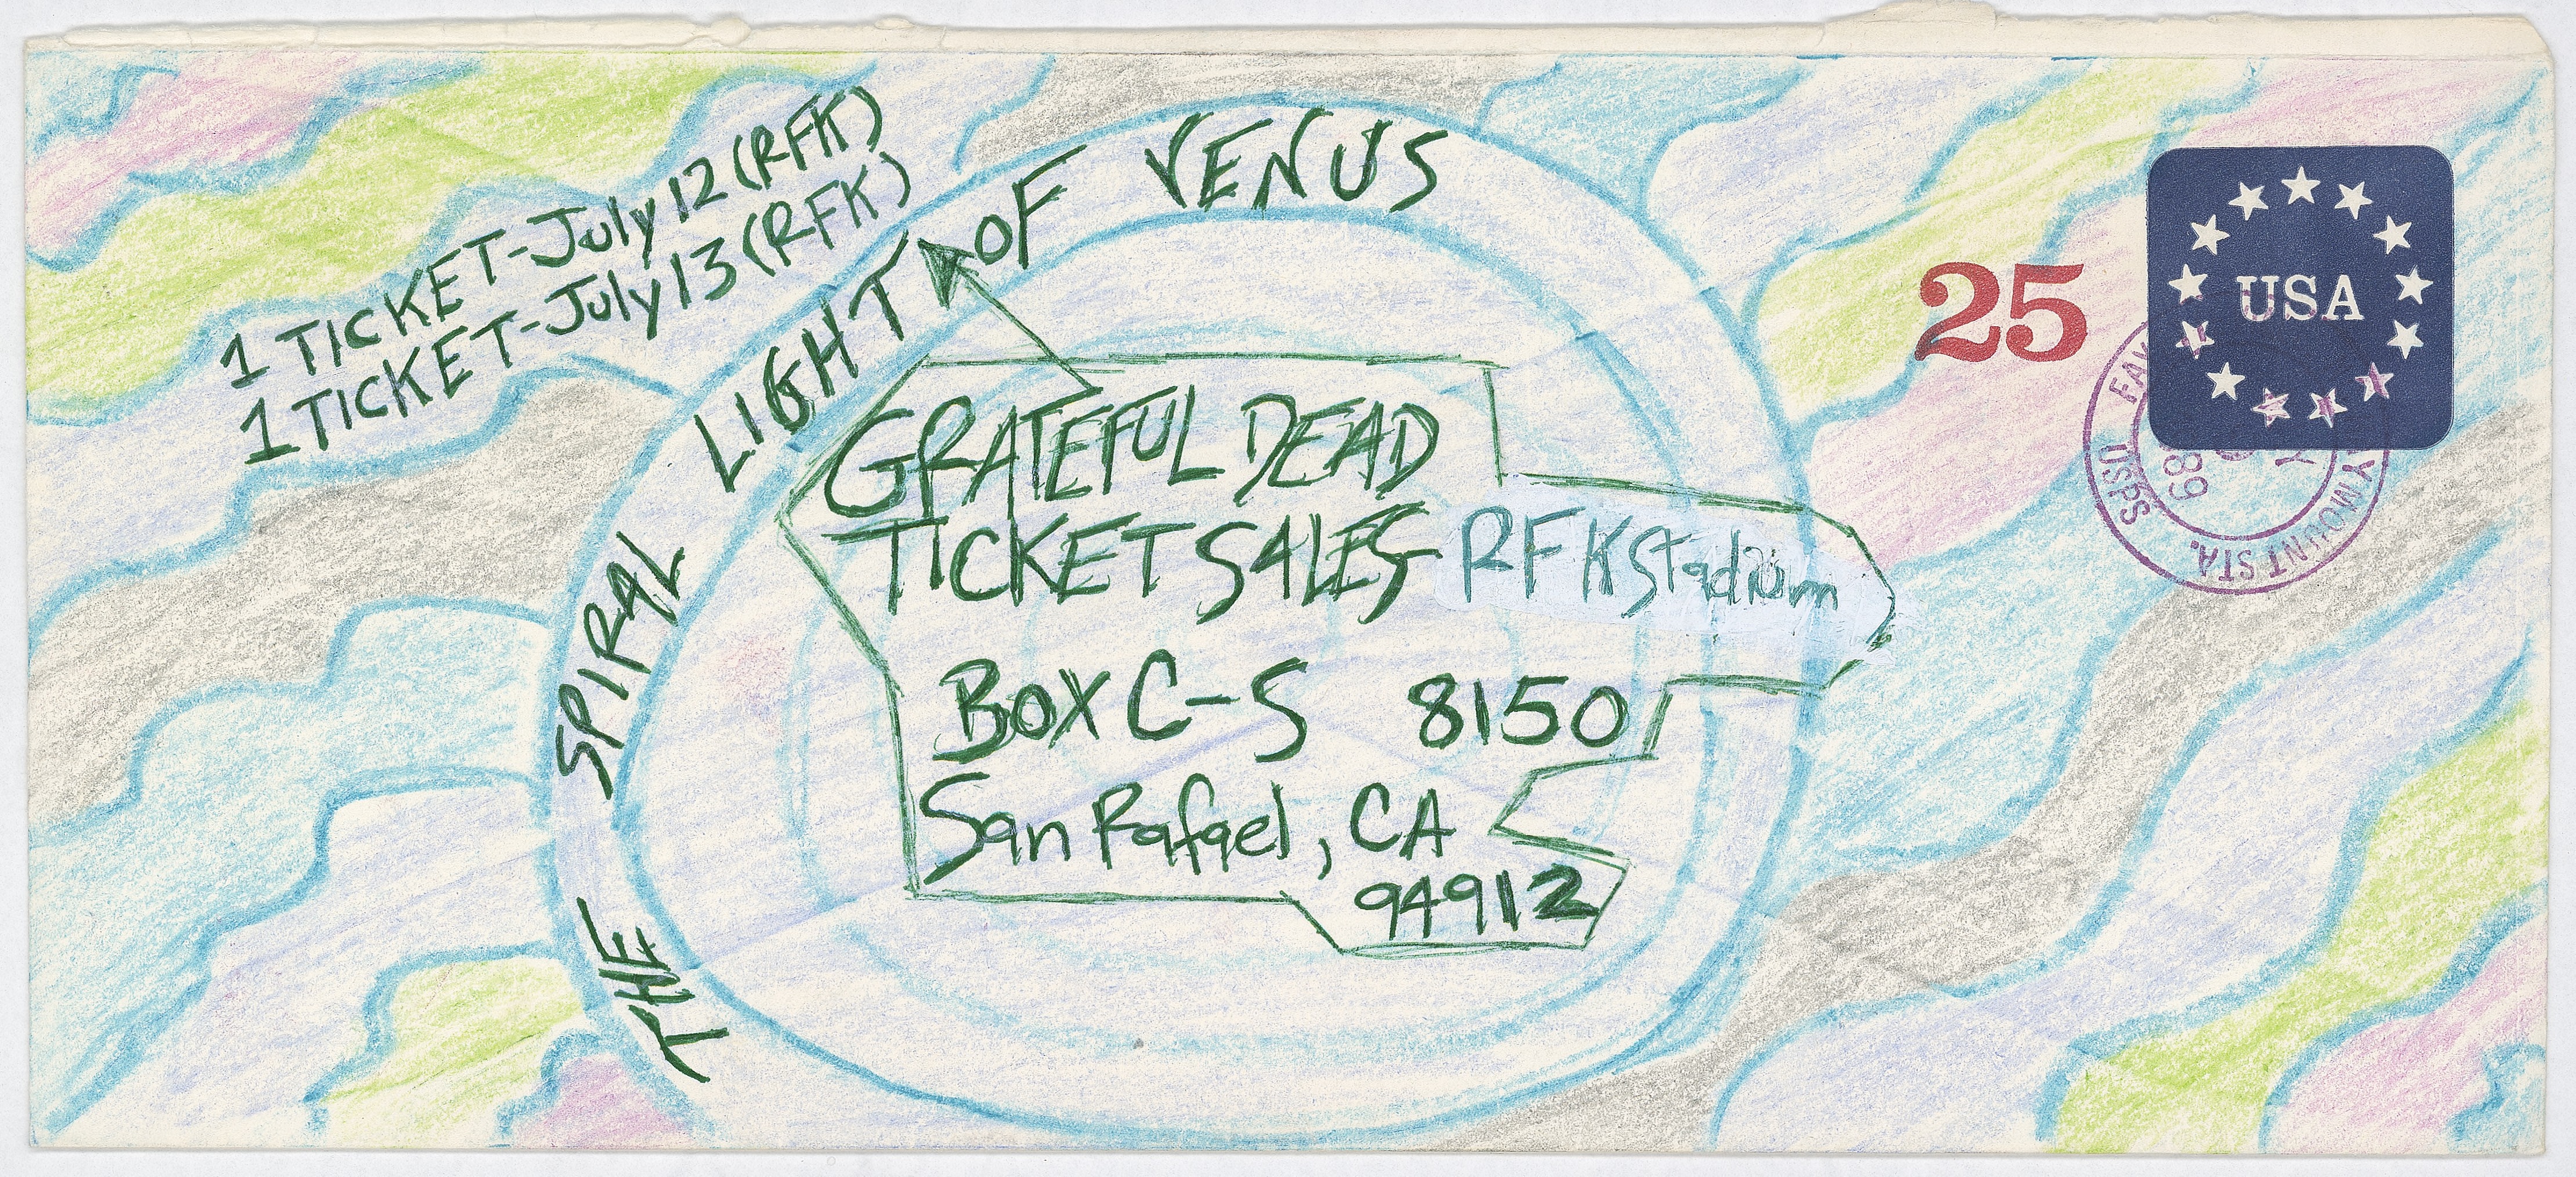 1 TICKET-July 12 (RFK)
1 TICKET-July 13 (RFK)
THE SPIRAL LIGHT OF VENUS
GRATEFUL DEAD
TICKET SALES-RFK Stadium
BOX C-S 8150
San Rafael, CA
94912
25
USA
USPS
89
Y MOUNT STA.